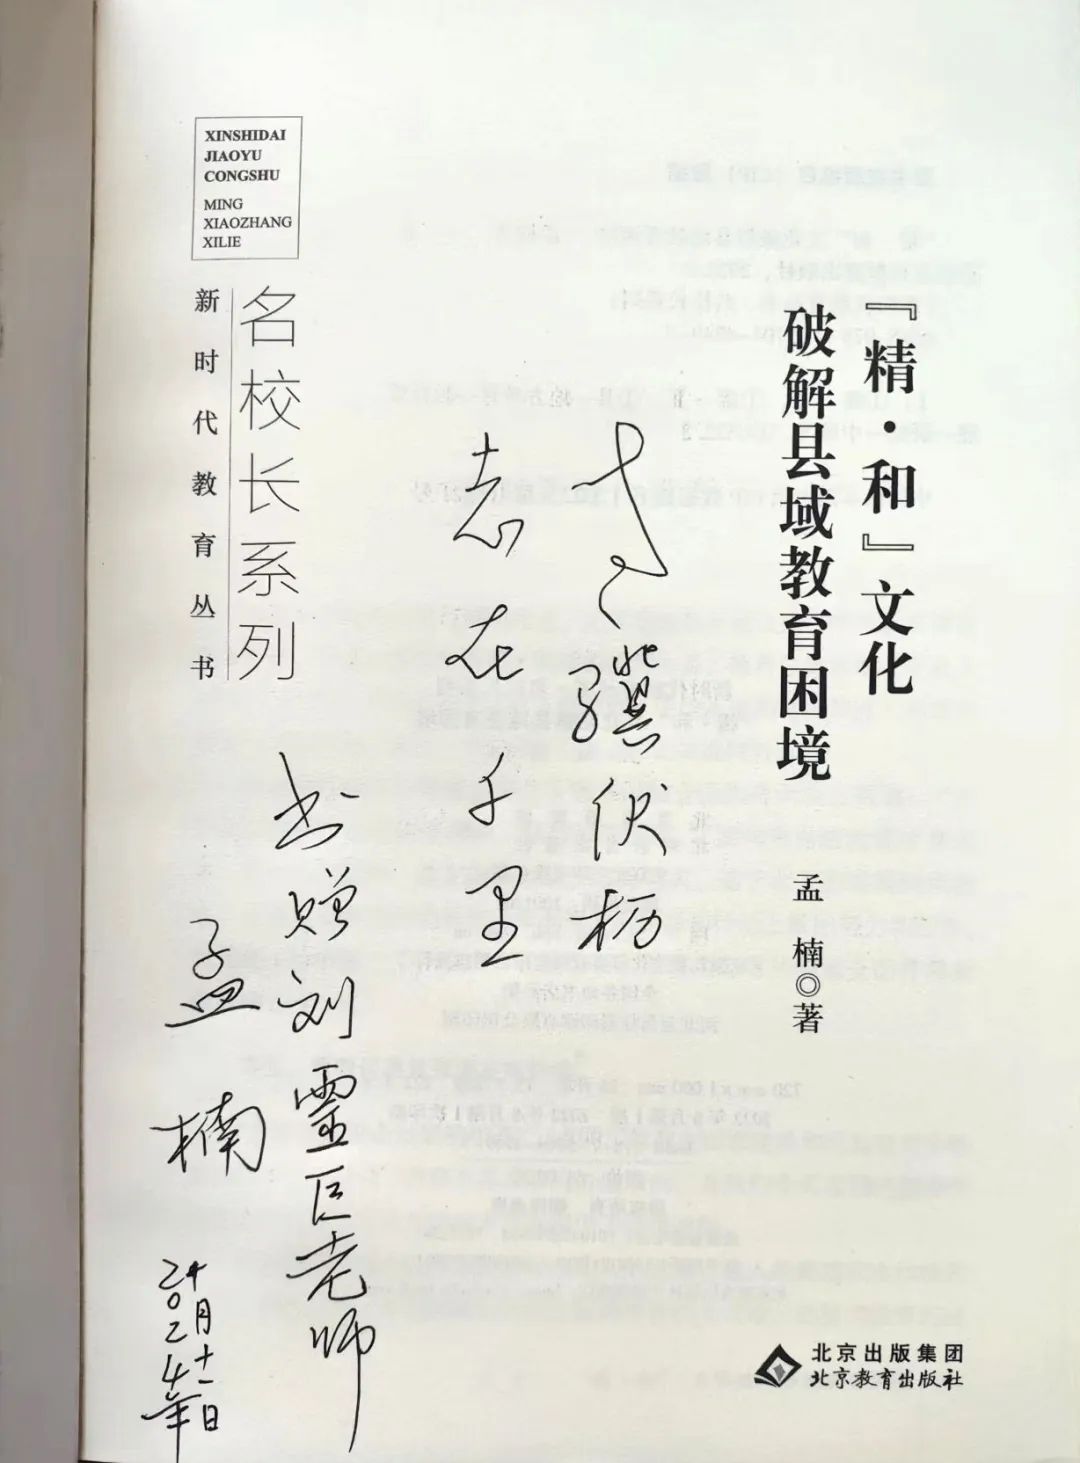 『精·和』文化
破解县域教育困境
孟楠◎著
北京出版集团
北京教育出版社
XINSHIDAI
JIAOYU
CONGSHU
MING
XIAOZHANG
XILIE
名校长系列
新时代教育丛书
老骥伏枥
志在千里
书赠刘霊巨老师
孟楠
二〇二4年
十月十一日